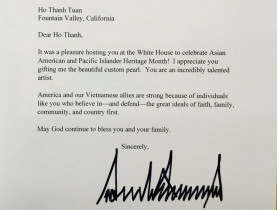 Ho Thanh Tuan
Fountain Valley, California
Dear Ho Thanh,
It was a pleasure hosting you at the White House to celebrate Asian
American and Pacific Islander Heritage Month! I appreciate you
gifting me the beautiful custom pearl. You are an incredibly talented
artist.
America and our Vietnamese allies are strong because of individuals
like you who believe in—and defend—the great ideals of faith, family,
community, and country first.
May God continue to bless you and your family.
Sincerely,